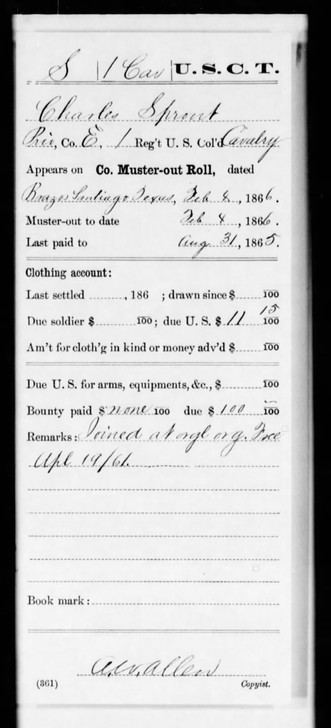 S | 1 Cav | U.S.C.T.
Charles Sprout
Priv, Co. E, 1 Reg't U. S. Col'd Cavalry
Appears on Co. Muster-out Roll, dated
Brazos Santiago Texas, Feb 4, 1866.
Muster-out to date Feb 4, 1866.
Last paid to Aug 31, 1865.
Clothing account:
Last settled , 186 ; drawn since $ 100
Due soldier $ 100; due U. S. $ 11 15/100
Am't for cloth'g in kind or money adv'd $ 100
Due U. S. for arms, equipments, &c., $ 100
Bounty paid $ none 100 due $ 100 100
Remarks: Joined at orgl org. Free
Apl 19/61.
Book mark:
(361)
Copyist.